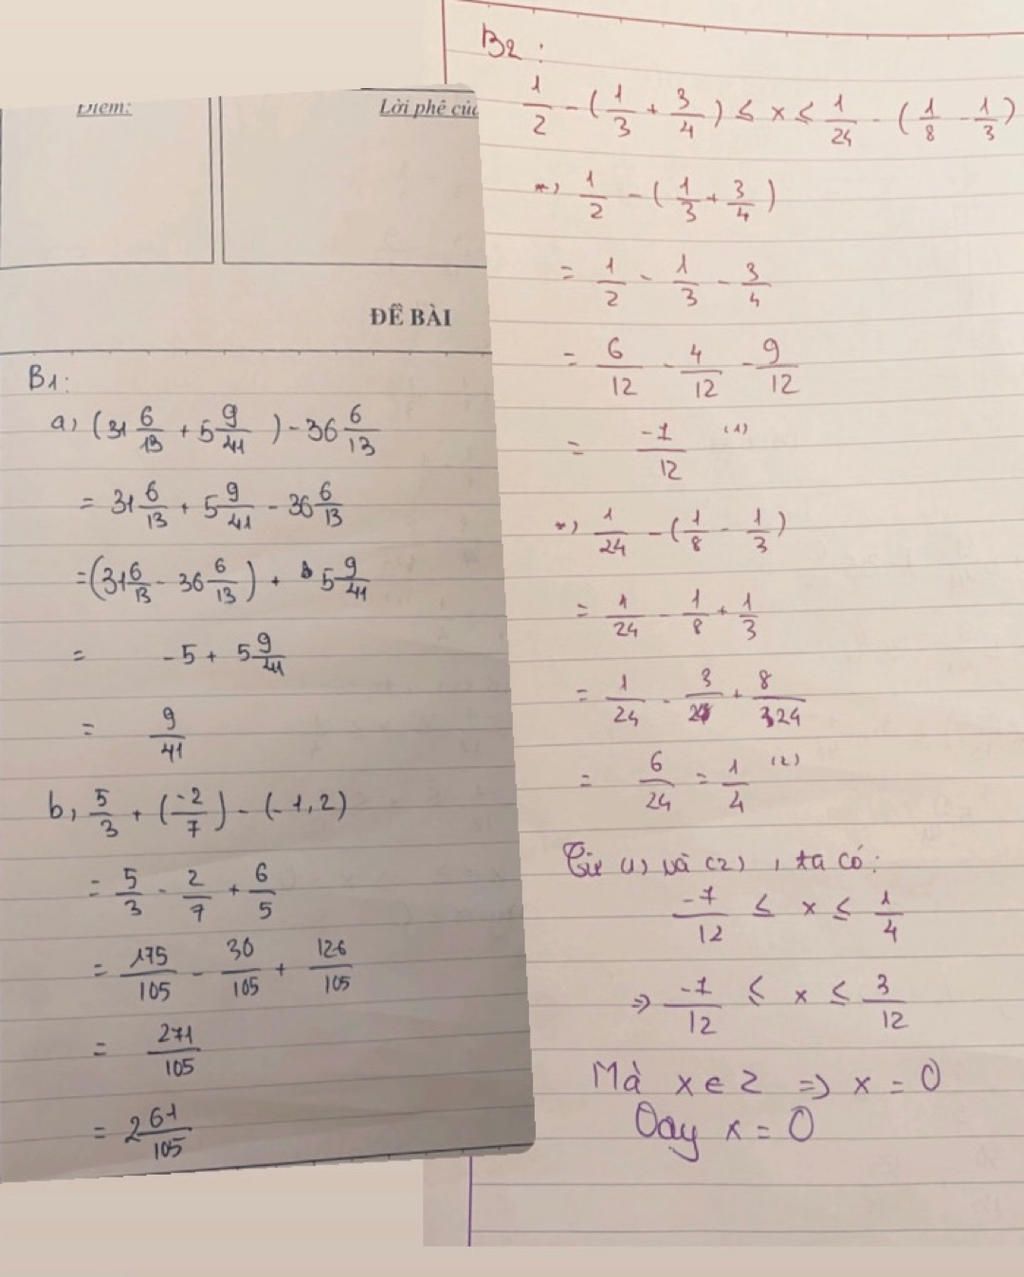 Điểm:
Lời phê củ
ĐỀ BÀI
B1:
a, (31 6/13 + 5 9/41) - 36 6/13
= 31 6/13 + 5 9/41 - 36 6/13
= (31 6/13 - 36 6/13) + 5 9/41
= -5 + 5 9/41
= 9/41
b, 5/3 + (-2/7) - (-1,2)
= 5/3 - 2/7 + 6/5
= 175/105 - 30/105 + 126/105
= 271/105
= 2 61/105
B2:
1/2 - (1/3 + 3/4) ≤ x ≤ 1/24 - (1/8 - 1/3)
*, 1/2 - (1/3 + 3/4)
= 1/2 - 1/3 - 3/4
= 6/12 - 4/12 - 9/12
= -7/12 (1)
*, 1/24 - (1/8 - 1/3)
= 1/24 - 1/8 + 1/3
= 1/24 - 3/24 + 8/24
= 6/24 = 1/4 (2)
Từ (1) và (2), ta có:
-7/12 ≤ x ≤ 1/4
=> -7/12 ≤ x ≤ 3/12
Mà x ∈ Z => x = 0
Vậy x = 0